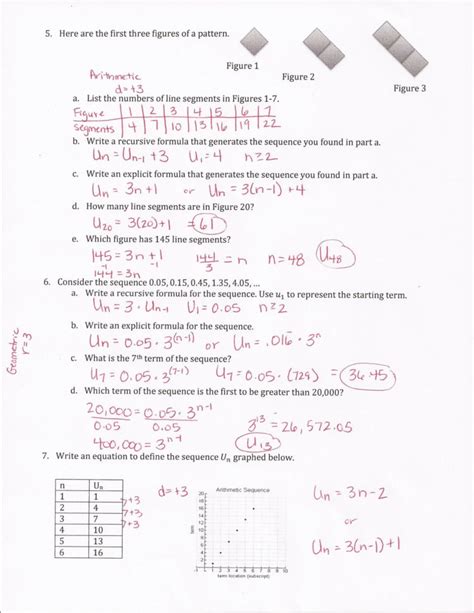 5. Here are the first three figures of a pattern.
Figure 1
Figure 2
Figure 3
Arithmetic
d= +3
a. List the numbers of line segments in Figures 1-7.
Figure 1 2 3 4 5 6 7
Segments 4 7 10 13 16 19 22
b. Write a recursive formula that generates the sequence you found in part a.
Un = Un-1 +3 U1=4 n≥2
c. Write an explicit formula that generates the sequence you found in part a.
Un = 3n+1 or Un = 3(n-1)+4
d. How many line segments are in Figure 20?
U20 = 3(20)+1 = 61
e. Which figure has 145 line segments?
145 = 3n +1 144/3 = n n=48 U48
-1 -1
144 = 3n
6. Consider the sequence 0.05, 0.15, 0.45, 1.35, 4.05, ...
a. Write a recursive formula for the sequence. Use u1 to represent the starting term.
Un = 3 · Un-1 U1 = 0.05 n≥2
Geometric
r=3
b. Write an explicit formula for the sequence.
Un = 0.05 · 3^(n-1) or Un = .016 · 3^n
c. What is the 7th term of the sequence?
U7 = 0.05 · 3^(7-1) U7 = 0.05 · (729) = 36.45
d. Which term of the sequence is the first to be greater than 20,000?
20,000 = 0.05 · 3^n-1
0.05 0.05
3^13 = 26,572.05
400,000 = 3^n-1
U13
7. Write an equation to define the sequence Un graphed below.
n Un
1 1
2 4
3 7
4 10
5 13
6 16
7+3
7+3
7+3
d= +3
Arithmetic Sequence
20
18
16
14
12
10
8
6
4
2
term
-1 1 2 3 4 5 6 7 8 9 10
term location (subscript)
Un = 3n-2
or
Un = 3(n-1)+1